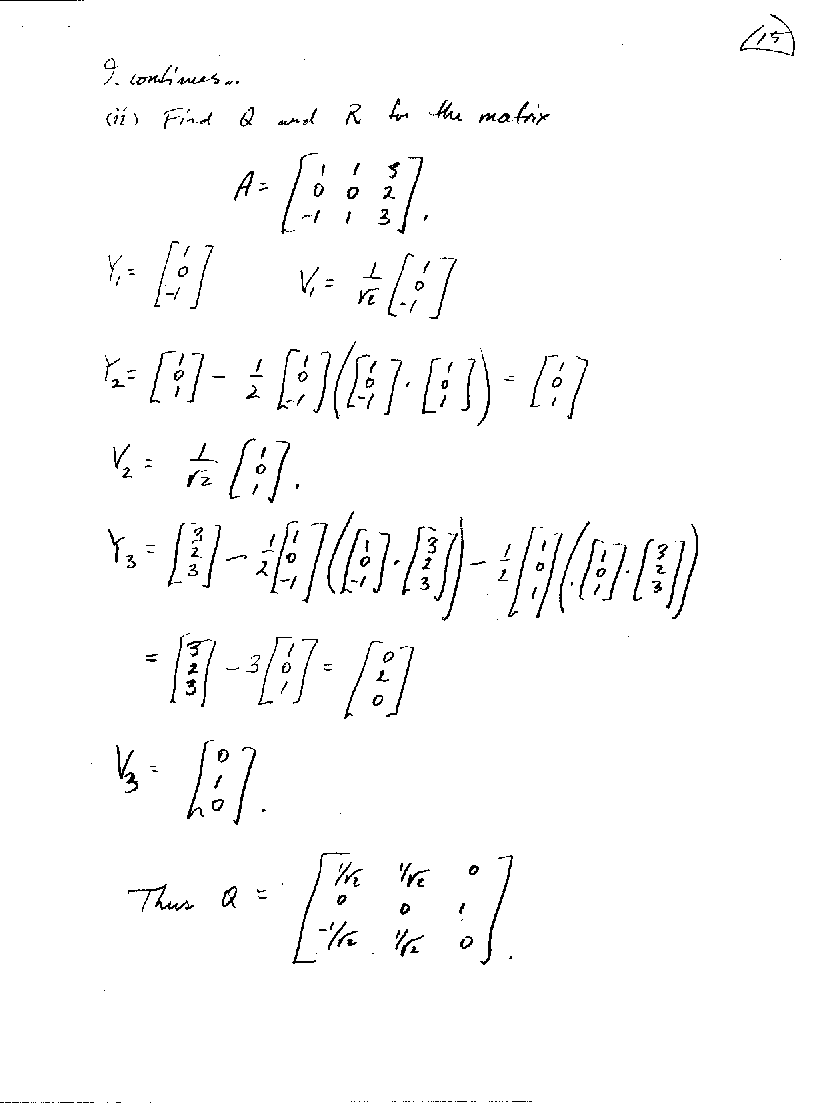 15
9. continues...
(ii) Find Q and R for the matrix
A = [1 1 3; 0 0 2; -1 1 3].
Y₁ = [1; 0; -1]   V₁ = 1/√2 [1; 0; -1]
Y₂ = [1; 0; 1] - 1/2 [1; 0; -1] ([1; 0; -1] · [1; 0; 1]) = [1; 0; 1]
V₂ = 1/√2 [1; 0; 1].
Y₃ = [3; 2; 3] - 1/2 [1; 0; -1] ([1; 0; -1] · [3; 2; 3]) - 1/2 [1; 0; 1] ([1; 0; 1] · [3; 2; 3])
= [3; 2; 3] - 3 [1; 0; 1] = [0; 2; 0]
V₃ = [0; 1; 0].
Thus Q = [1/√2 1/√2 0; 0 0 1; -1/√2 1/√2 0].